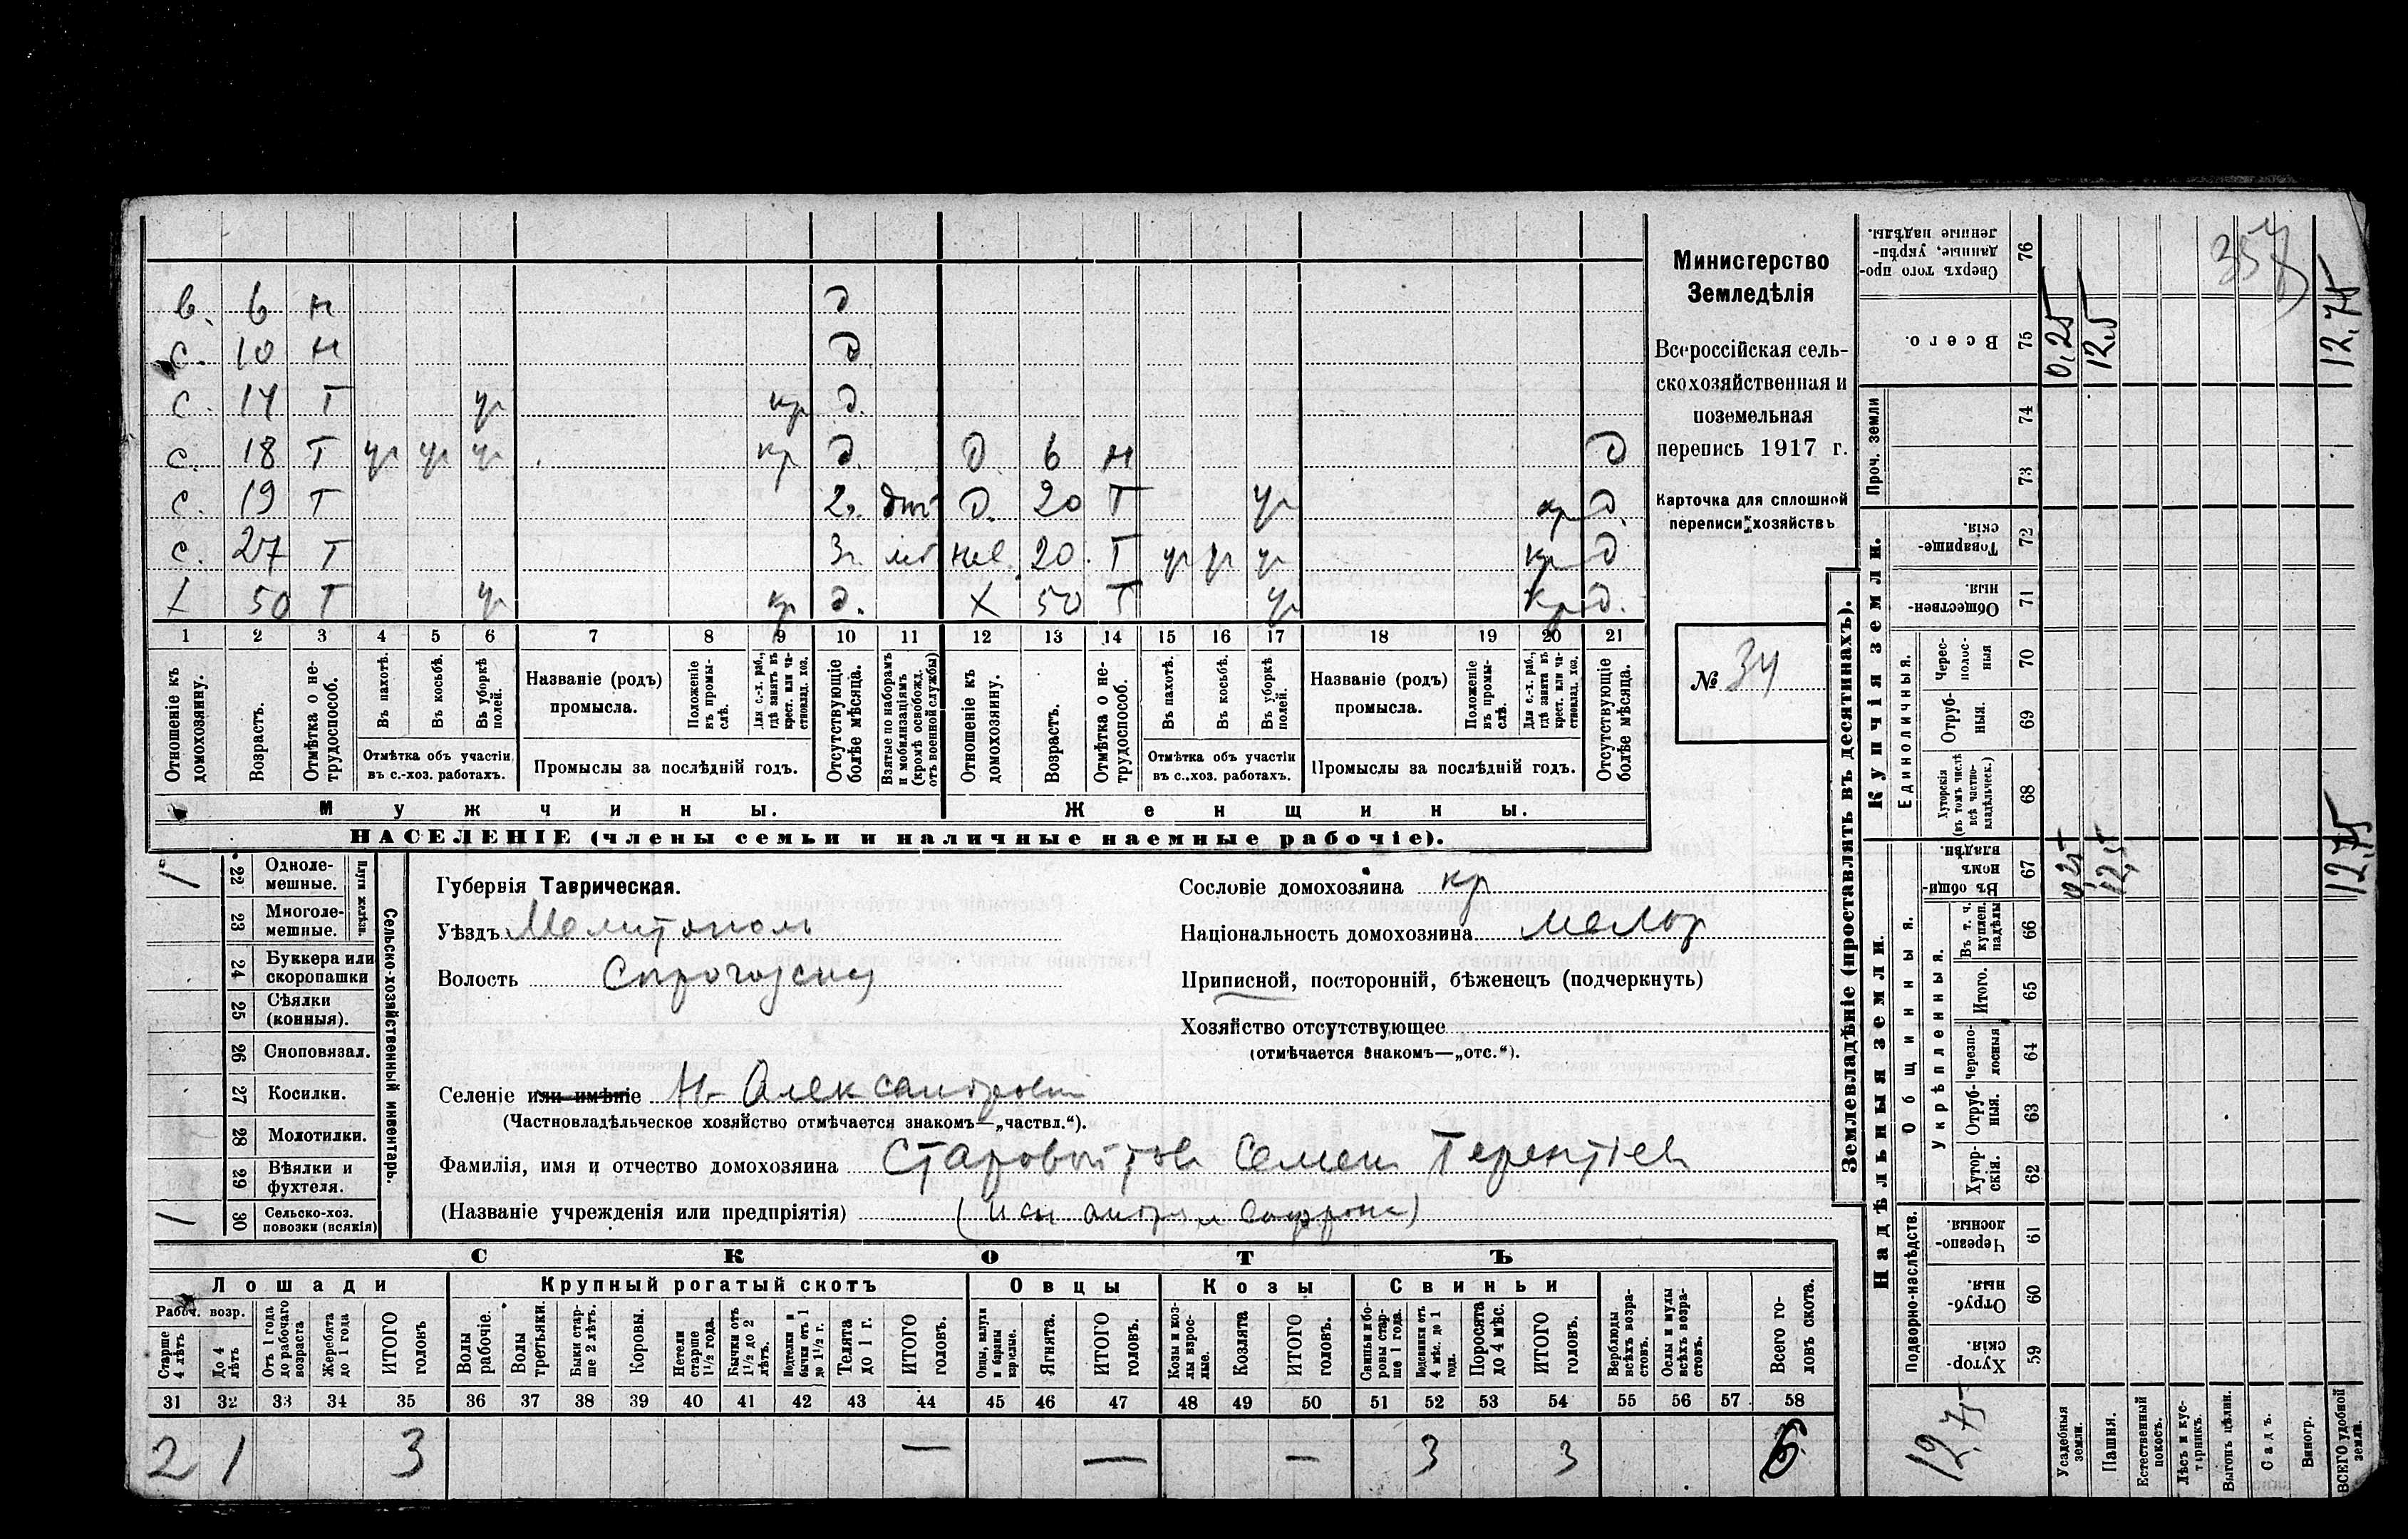 в. 6 н д
с. 10 н д
с. 14 Т ур кр д.
с. 18 Т ур ур ур кр д. д. 6 н д
с. 19 Т 2. д. 20 Т ур кр д.
с. 27 Т 3г. нев. 20. Т ур ур ур кр д
х 50 Т ур кр д. х 50 Т ур кр д.
1 2 3 4 5 6 7 8 9 10 11 12 13 14 15 16 17 18 19 20 21
Отношеніе къ домохозяину.
Возрастъ.
Отмѣтка о нетрудоспособ.
Въ пахотѣ.
Въ косьбѣ.
Въ уборкѣ полей.
Отмѣтка объ участіи
въ с.-хоз. работахъ.
Названіе (родъ)
промысла.
Положеніе въ промыслѣ.
Для с.-х. раб., гдѣ занятъ въ крест. или частновлад. хоз.
Промыслы за послѣдній годъ.
Отсутствующіе болѣе мѣсяца.
Взятые по наборамъ и мобилизаціямъ (кромѣ освобожд. отъ военной службы)
Отношеніе къ домохозяину.
Возрастъ.
Отмѣтка о нетрудоспособ.
Въ пахотѣ.
Въ косьбѣ.
Въ уборкѣ полей.
Отмѣтка объ участіи
въ с.-хоз. работахъ.
Названіе (родъ)
промысла.
Положеніе въ промыслѣ.
Для с.-х. раб., гдѣ занята въ крест. или частновлад. хоз.
Промыслы за послѣдній годъ.
Отсутствующіе болѣе мѣсяца.
Мужчины. Женщины.
НАСЕЛЕНІЕ (члены семьи и наличные наемные рабочіе).
Министерство
Земледѣлія
Всероссійская сель-
скохозяйственная и
поземельная
перепись 1917 г.
Карточка для сплошной
переписи хозяйствъ
№ 34
Плуги желѣзн.
1 22 Одноле-
мешные.
23 Многоле-
мешные.
24 Буккера или
скоропашки
25 Сѣялки
(конныя).
26 Сноповязал.
27 Косилки.
28 Молотилки.
29 Вѣялки и
фухтеля.
1 30 Сельско-хоз.
повозки (всякія)
Сельско-хозяйственный инвентарь.
Губернія Таврическая.
Уѣздъ Мелитополь
Волость
Селеніе или имѣніе Н-Александровка
(Частновладѣльческое хозяйство отмѣчается знакомъ—„частвл.“).
Фамилія, имя и отчество домохозяина Старовойтов Семен Терентіев
(Названіе учрежденія или предпріятія)
Сословіе домохозяина кр
Національность домохозяина малор
Приписной, посторонній, бѣженецъ (подчеркнуть)
Хозяйство отсутствующее
(отмѣчается знакомъ—„отс.“).
СКОТЪ
Лошади Крупный рогатый скотъ Овцы Козы Свиньи
Рабоч. возр.
Старше 4 лѣтъ
До 4 лѣтъ
Отъ 1 года до рабочаго возраста
Жеребята до 1 года
ИТОГО головъ
Волы рабочіе.
Волы третьяки.
Быки старше 2 лѣтъ.
Коровы.
Нетели старше 1½ года.
Бычки отъ 1½ до 2 лѣтъ.
Подтелки и бычки отъ 1 до 1½ г.
Телята до 1 г.
ИТОГО головъ.
Овцы, валухи и бараны взрослые.
Ягнята.
ИТОГО головъ.
Козы и козлы взрослые.
Козлята
ИТОГО головъ.
Свиньи и боровы старше 1 года.
Подсвинки отъ 4 мѣс. до 1 года.
Поросята до 4 мѣс.
ИТОГО головъ.
Верблюды всѣхъ возрастовъ.
Ослы и мулы всѣхъ возрастовъ.
Всего головъ скота.
31 32 33 34 35 36 37 38 39 40 41 42 43 44 45 46 47 48 49 50 51 52 53 54 55 56 57 58
2 1 3 — — — 3 3 6
Землевладѣніе (проставлять въ десятинахъ).
Надѣльныя земли.
Купчія земли.
Проч. земли
Подворно-наслѣдств.
Общинныя.
Укрѣпленныя.
Единоличныя.
Хуторскія. 59
Отрубныя. 60
Черезполосныя. 61
Хуторскія. 62
Отрубныя. 63
Черезполосныя 64
Итого. 65
Въ т. ч. куплен. надѣлы 66
Въ общинномъ владѣн. 67
Хуторскія (въ томъ числѣ всѣ частновладѣльческ.) 68
Отрубныя. 69
Черезполосныя 70
Общественныя. 71
Товарищескія. 72
73
74
Всего. 75
Сверхъ того проданные, укрѣпленные надѣлы. 76
Усадебныя земли. 0,25 0,25
Пашня. 12,5 12,5
Естественный покосъ.
Лѣсъ и кустарникъ.
Выгонъ цѣлин.
Садъ.
Виногр.
ВСЕГО удобной земли. 12,75 12,75
12,75
357